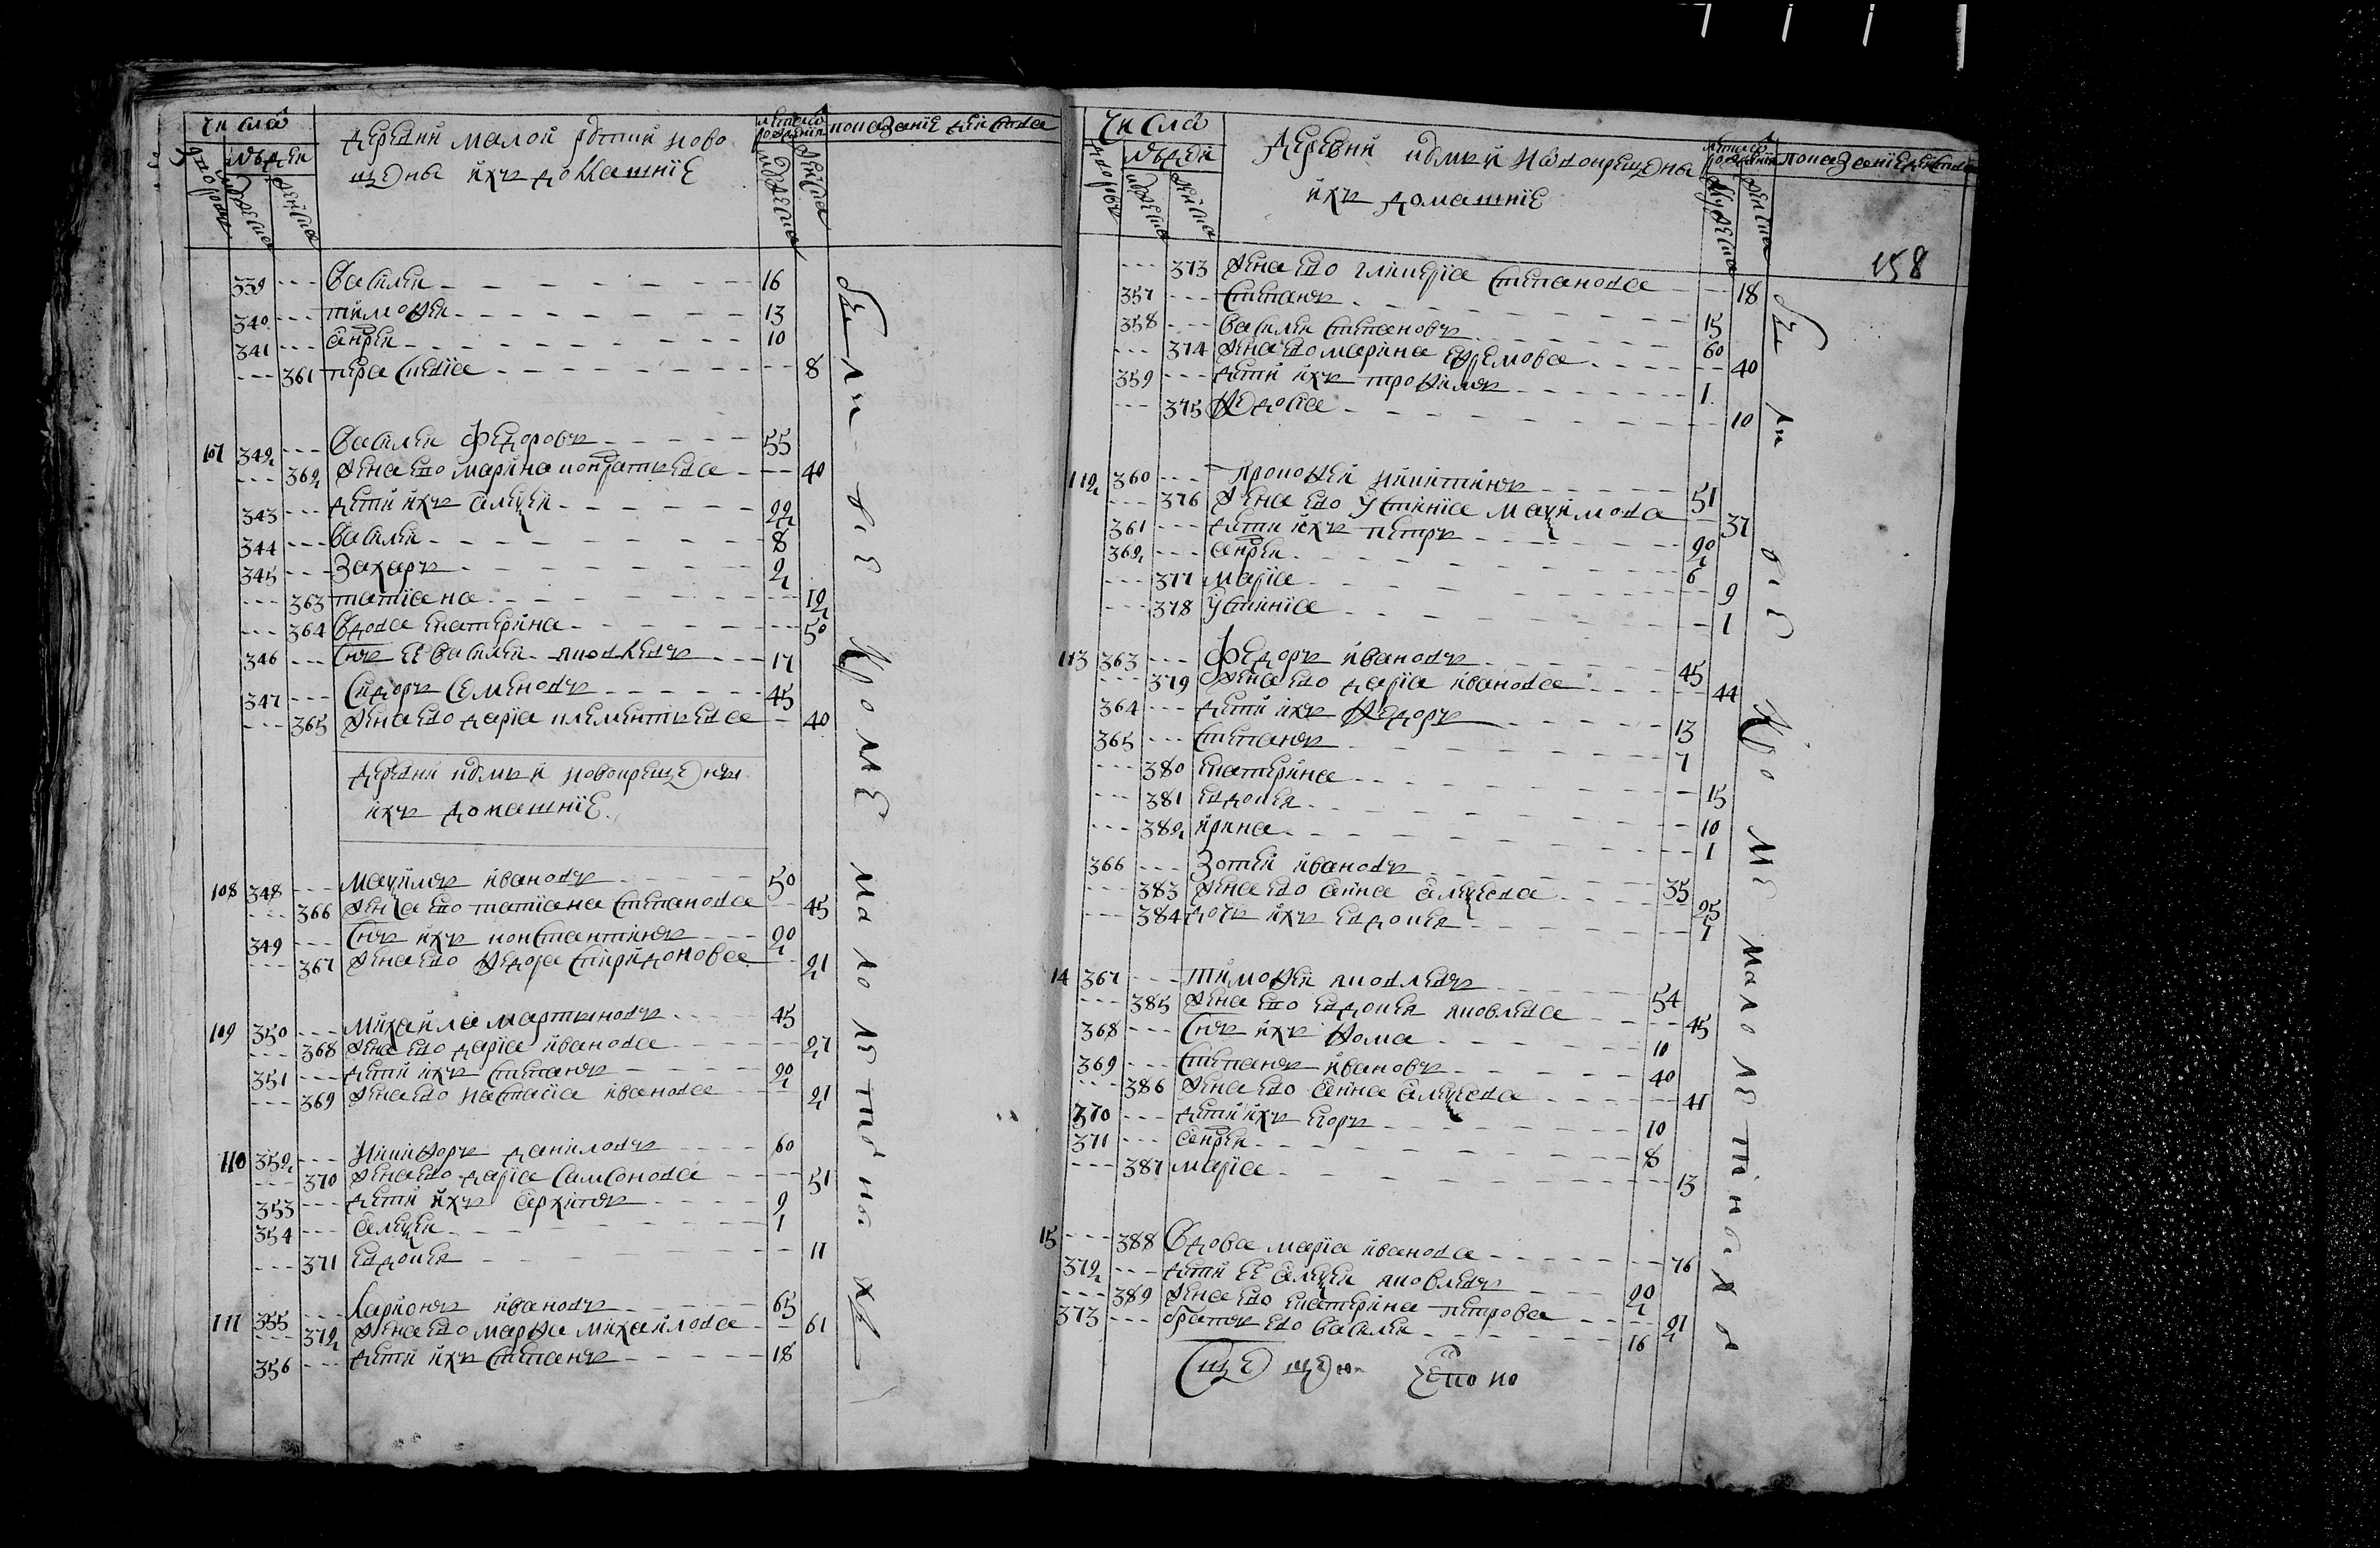 числа
людей
деревни малой ново
щены ихъ домашние
показание действа
339 --- Василей 16
340 --- тимофей 13
341 --- андрей 10
--- 361 параскевиа 8
107 342 --- Василей Федоровъ 55
--- 362 жена ево марина 40
343 --- дети ихъ алексей 22
344 --- Василей 8
345 --- Захаръ 2
--- 363 татиана 12
--- 364 вдова екатерина 50
346 --- сынъ её Василей яковлевъ 17
347 --- Сидоръ Семеновъ 45
--- 365 жена ево дариа клементиева 40
деревни новокрещены
ихъ домашние
108 348 --- Максимъ ивановъ 50
--- 366 жена ево татиана степанова 45
349 --- сынъ ихъ константинъ 20
--- 367 жена ево федора спиридонова 21
109 350 --- михайла мартиновъ 45
--- 368 жена ево дариа иванова 27
351 --- дети ихъ степанъ 20
--- 369 жена ево настасиа иванова 21
110 352 --- Никифоръ даниловъ 60
--- 370 жена ево дариа Самсонова 51
353 --- дети ихъ архипъ 9
354 --- алексей 1
--- 371 евдокея 11
111 355 --- Ларионъ ивановъ 65
--- 372 жена ево марфа михайлова 61
356 --- дети ихъ степанъ 18
были все кроме малолетныхъ
числа
людей
Деревни новокрещены
ихъ домашние
показание действа
158
--- 373 жена ево гликериа степанова 18
357 --- степанъ 15
358 --- василей степановъ 60
--- 374 жена ево марина ефремова 40
359 --- дети ихъ трофимъ 1
--- 375 федосиа 10
112 360 --- Прокофей никитинъ 51
--- 376 жена ево устиниа максимова 37
361 --- дети ихъ петръ 20
362 --- андрей 6
--- 377 мариа 9
--- 378 устиниа 1
113 363 --- Федоръ ивановъ 45
--- 379 жена ево дариа иванова 44
364 --- дети ихъ федоръ 13
365 --- степанъ 7
--- 380 екатерина 15
--- 381 евдокея 10
--- 382 ирина 1
366 --- Зотей ивановъ 35
--- 383 жена ево анна алексеева 25
--- 384 дочь ихъ евдокея 1
14 367 --- Тимофей яковлевъ 54
--- 385 жена ево евдокея яковлева 45
368 --- сынъ ихъ фома 10
369 --- степанъ ивановъ 40
--- 386 жена ево анна алексеева 41
370 --- дети ихъ егоръ 10
371 --- андрей 8
--- 387 мариа 13
15 --- 388 Вдова мариа иванова 76
372 --- дети её алексей яковлевъ 20
--- 389 жена ево екатерина петрова 21
373 --- братъ ево василей 16
были все кроме малолетныхъ